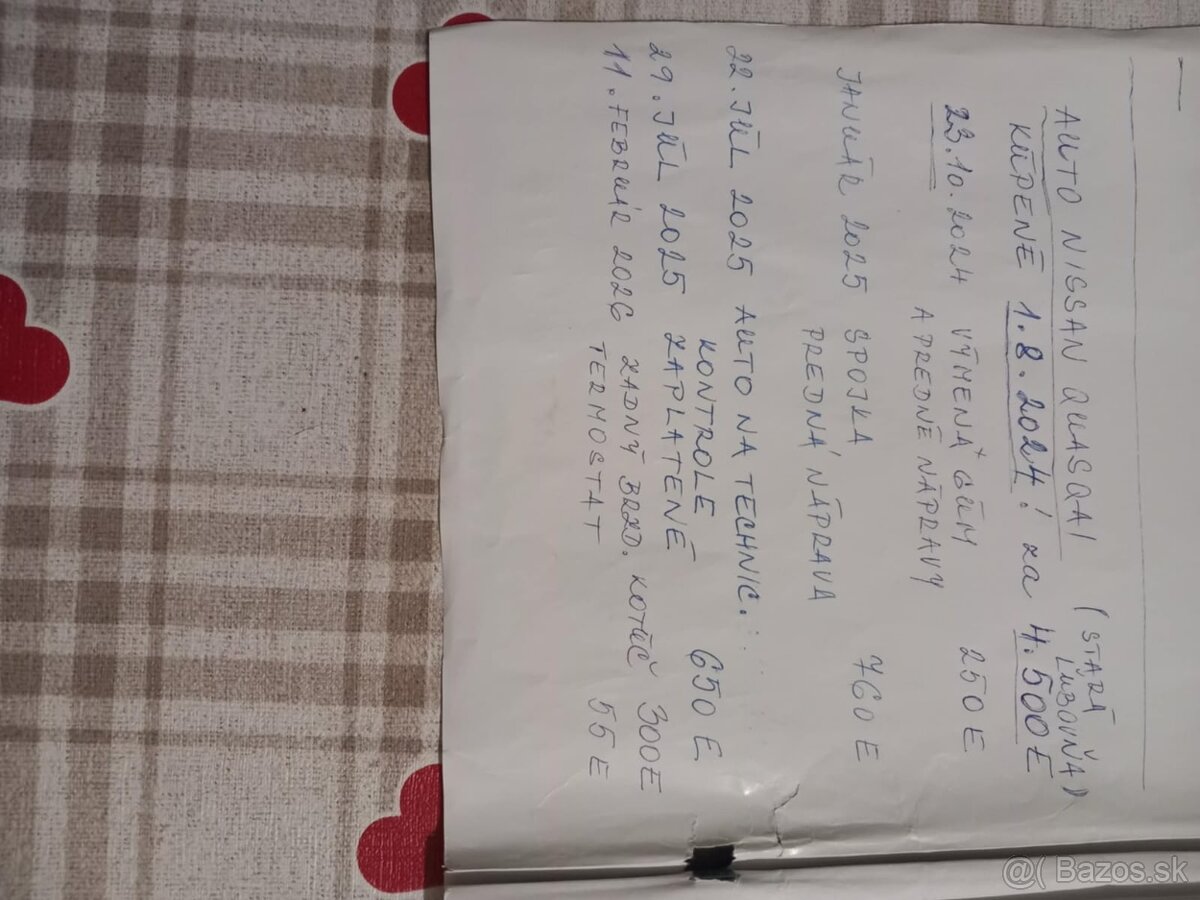 AUTO NISSAN QUASQAI (STARÁ ĽUBOVŇA)
KÚPENÉ 1.8.2024! za 4.500E
23.10.2024 VÝMENA+GÚM 250E
A PREDNÉ NÁPRAVY
JANUÁR 2025 SPOJKA 760E
PREDNÁ NÁPRAVA
22.JÚL 2025 AUTO NA TECHNIC.
KONTROLE 650E
29.JÚL 2025 ZAPLATENÉ
11.FEBRUÁR 2026 ZADNÝ BRZD. KOTÚČ 300E
TERMOSTAT 55E
@( Bazos.sk